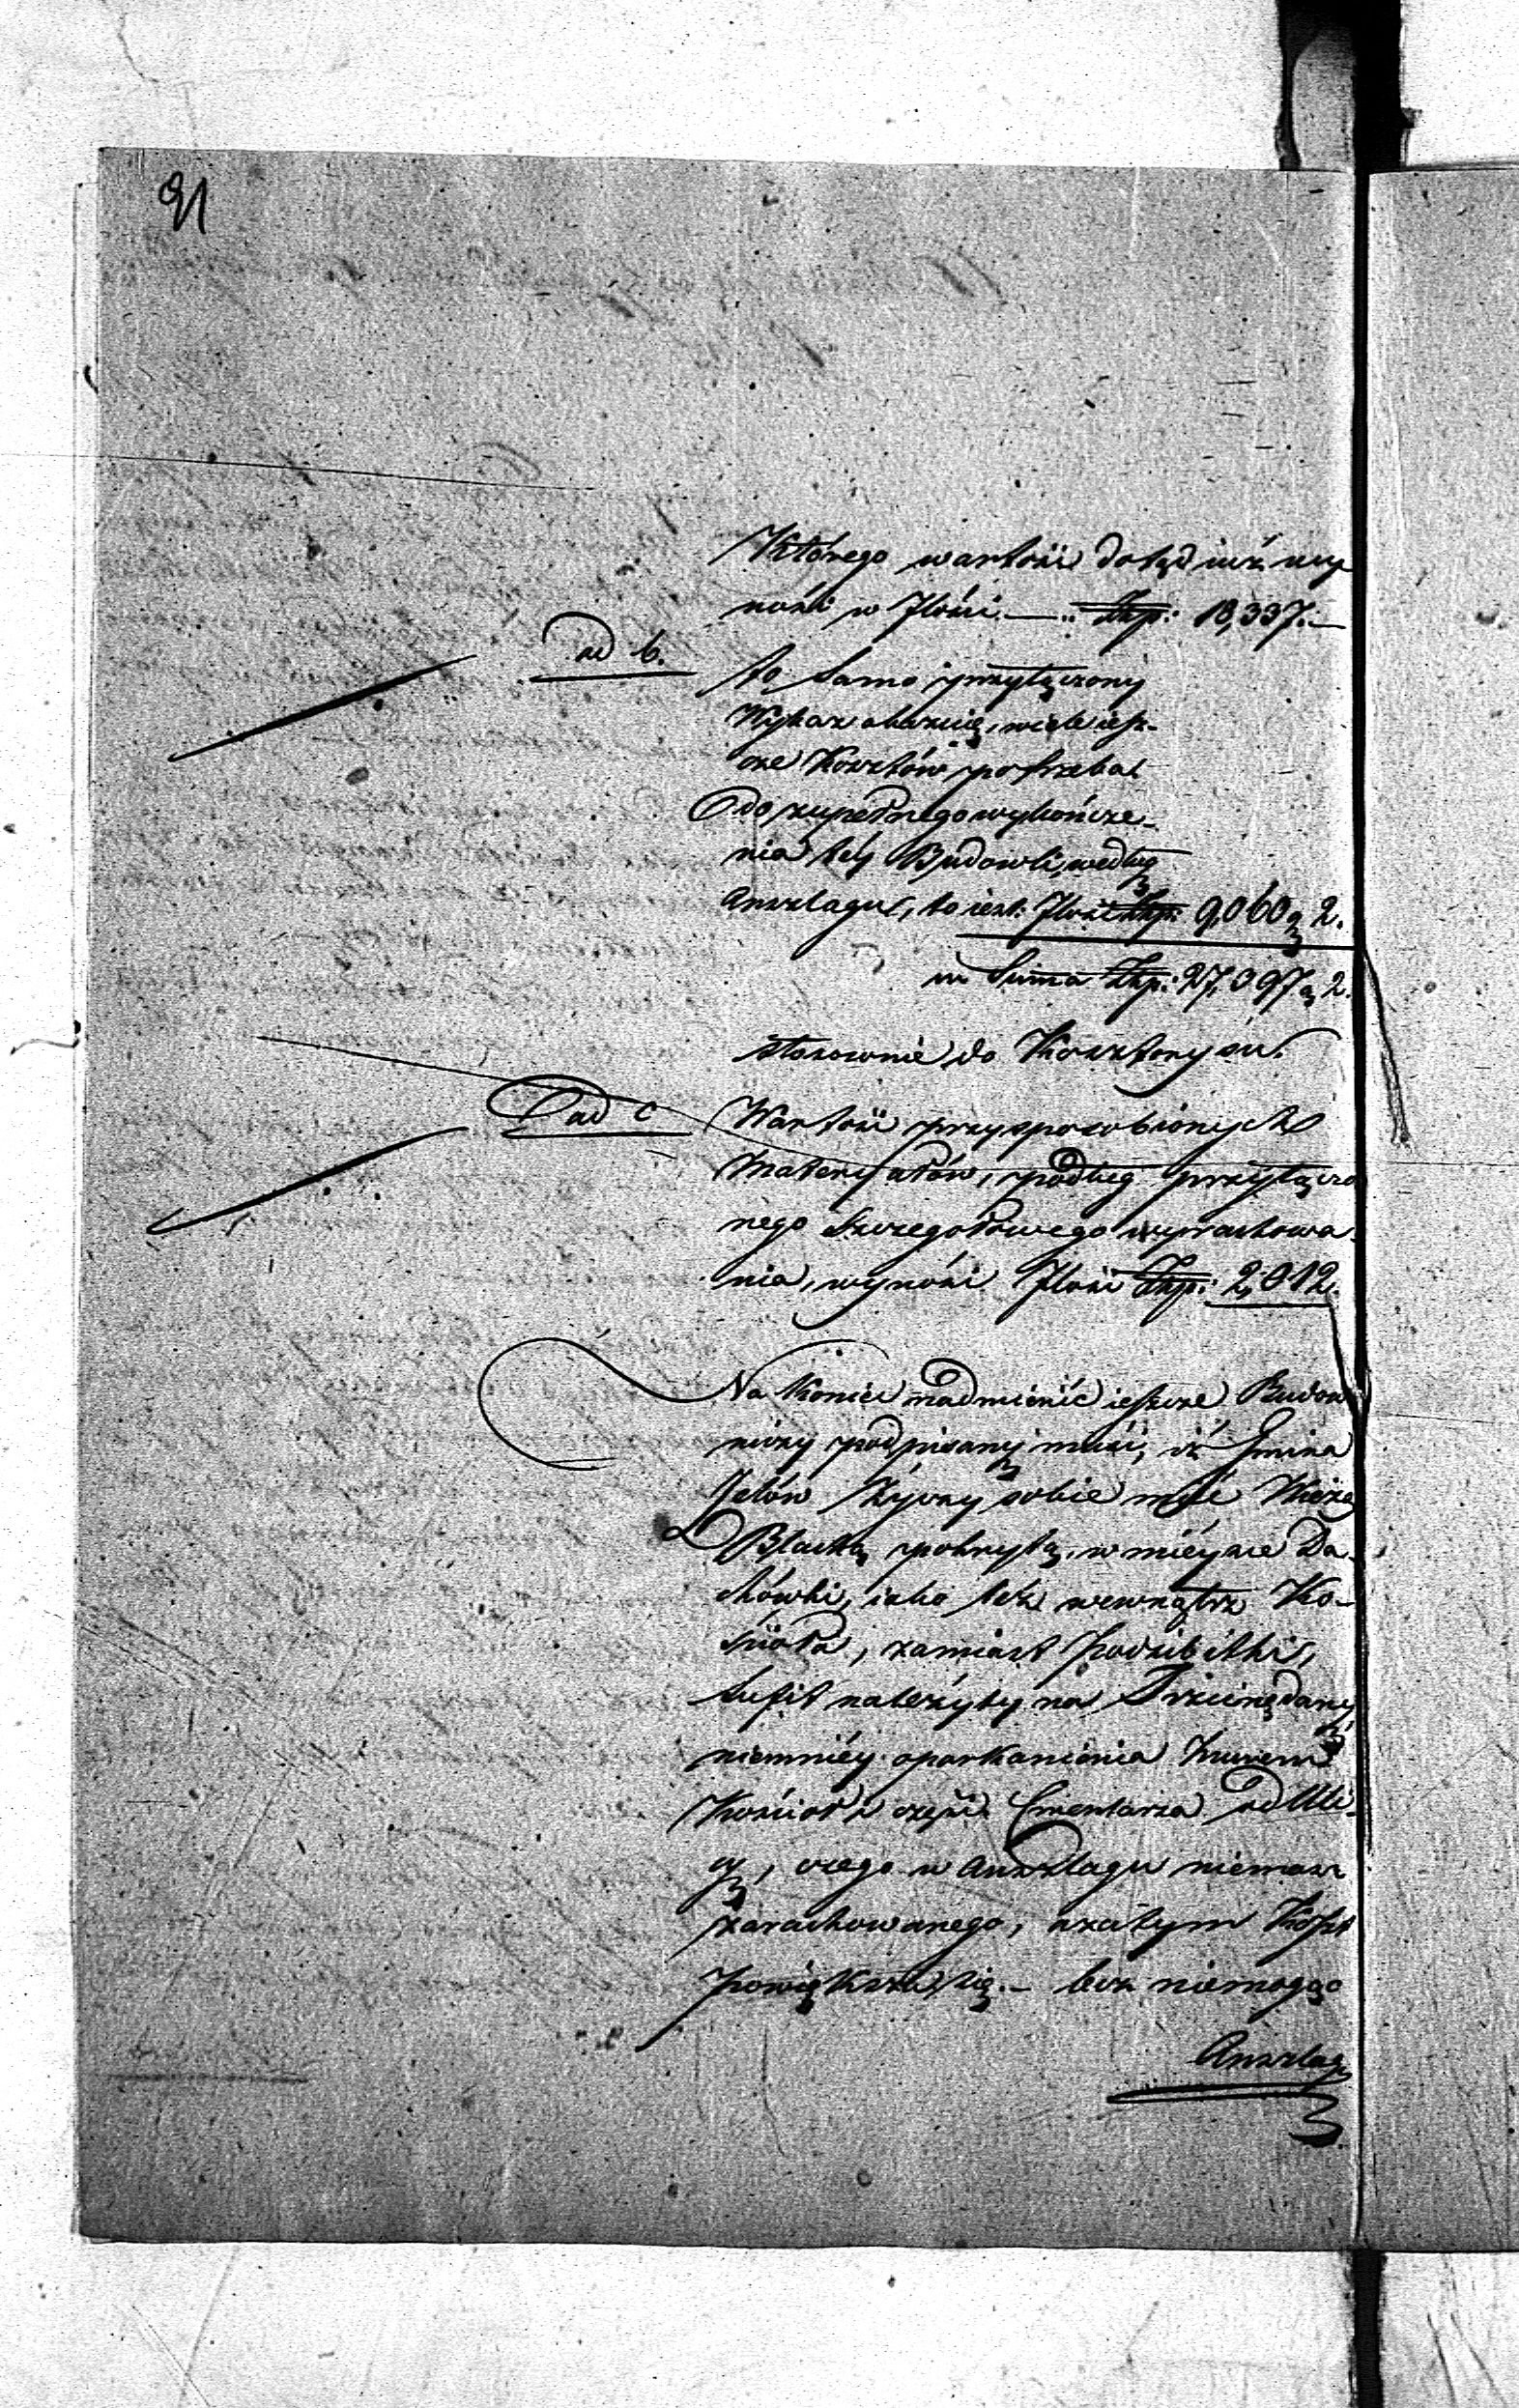 91
Którego wartość dotąd iuż wy
nośi w Ilości. —.. Złłp: 18,337. —
ad b.
to samo przyłączony
Wykaz okazuie, wiele iesz-
cze Kosztów potrzeba
do zupełnego wykończe-
nia téy Budowli, według
Anszlagu, to iest: Ilość Złłp: 9,060 g 2.
w Summa Złłp: 27,397 g 2.
stosownie do Kosztorysu.
ad c
Wartość przysposobionych
Materyałów, podług przyłączo
nego Szczegołowego wyrachowa-
nia, wynośi Ilość Złłp: 2,012.
Na koniec nadmienić ieszcze Budow
niczy podpisany muśi, iż Gmina
życzy sobie mieć Wieżę
Blachą pokrytą, w mieysce Da-
chówki, iako też wewnątrz Ko-
śćioła, zamiast Podsibitki,
Sufit należyty na Trzcinę dany
niemniéy oparkanienia Murem
Kośćioł i częśći Cmentarza od Uli-
cy, czego w Anszlagu niemasz
zarachowanego, azatym Koszt
Powiększa się. — lecz niemogąc
Anszlag